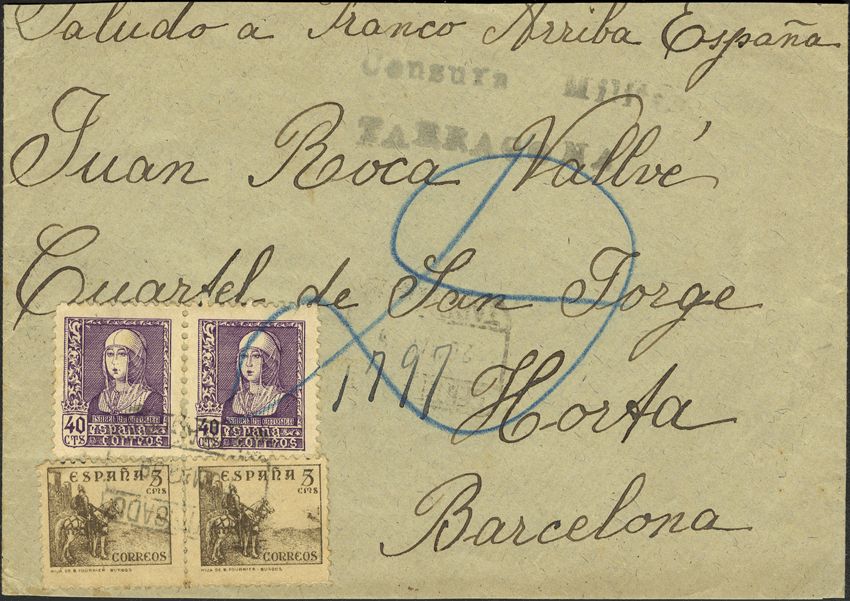 Saludo a Franco Arriba España
Censura Milit
TARRAGONA
Juan Roca Vallvé
Cuartel de San Jorge
1797
Horta
Barcelona
40 CTS
ISABEL LA CATOLICA
ESPAÑA
CORREOS
40 CTS
ISABEL LA CATOLICA
ESPAÑA
CORREOS
ESPAÑA 5 CTMS
CORREOS
HIJA DE B. FOURNIER - BURGOS
ESPAÑA 5 CTMS
CORREOS
HIJA DE B. FOURNIER - BURGOS